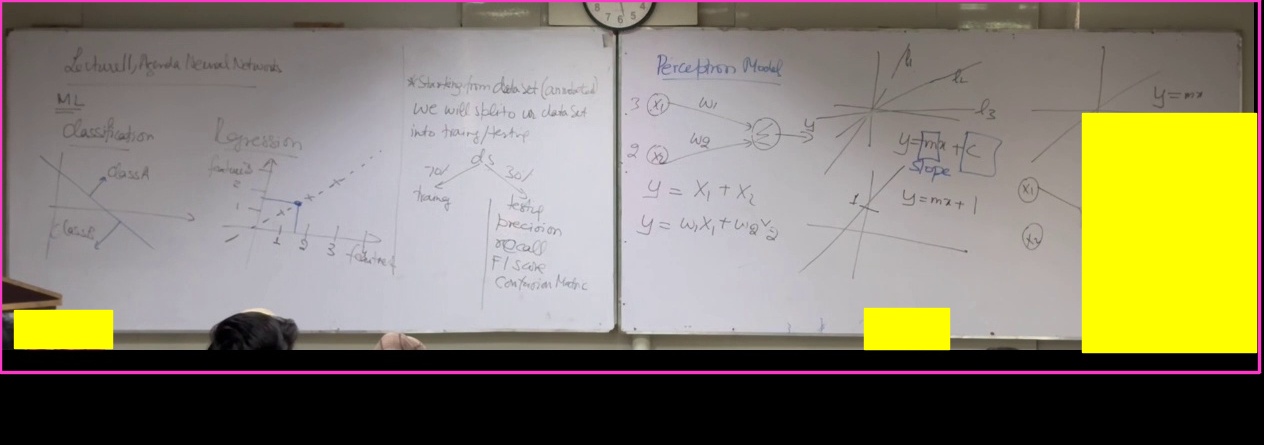 Lecture 11, Agenda Neural Networks
ML
Classification
Class A
Class B
Regression
2
1
1 2 3
* Starting from data set (annotated)
we will split our data set
into training/testing
ds
70% 30%
training
testing
precision
recall
F1 score
Confusion Matric
Perceptron Model
3 X1 w1
Σ y
2 X2 w2
y = X1 + X2
y = w1X1 + w2X2
l1
l2
l3
y = mx + C
slope
1
y = mx + 1
y = mx
X1
X2
8 7 6 5 4